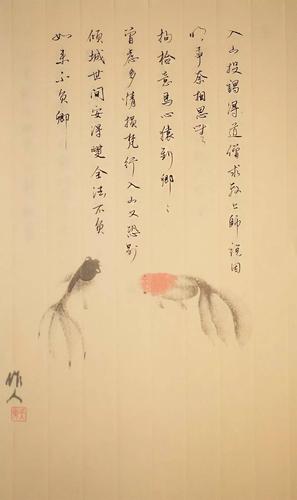 入山投謁得道僧求教上師說因
明爭奈相思
拘意馬心猿到卿〻
曾慮多情損梵行入山又恐別
傾城世間安得雙全法不負
如来不負卿
作人